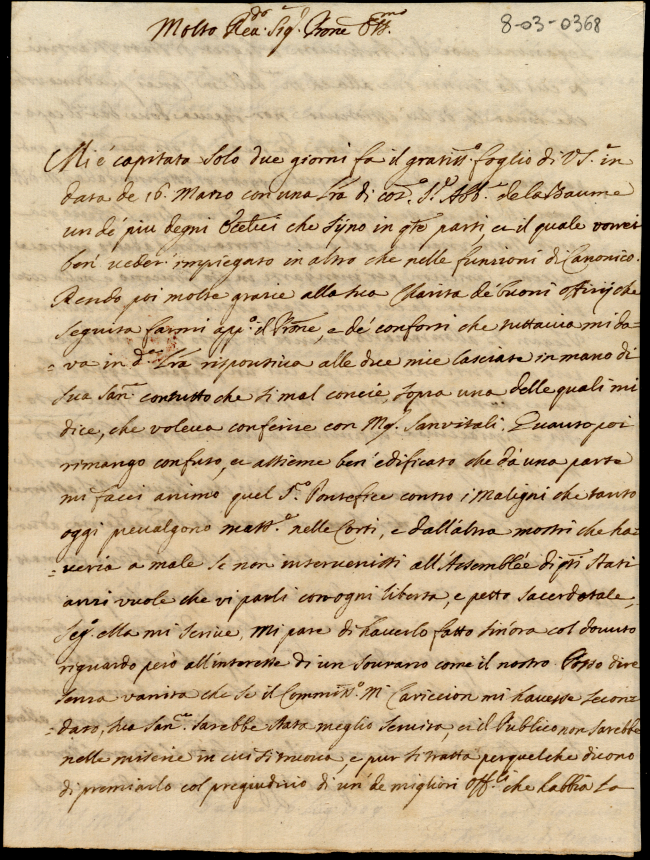 8-03-0368
Molto Rea.do Sig.r Prone Oss.mo
Mi é capitato solo due giorni fa il gratiss.o foglio di VS.a in
data de 16. Marzo con una Lra di cod.o S.r Abb.e de la Baume
un de' piu degni che sijno in qte parti, et il quale vorrei
ben' veder' impiegato in altro che nelle funzioni di Canonico.
Rendo poi molte grazie alla sua Charità de' buoni offizij che
seguita farmi app.o il Prone, e de' conforti che tuttavia mi da-
=va in d.a Lra risponsiva alle due mie lasciate in mano di
sua San.tà contutto che si mal concie, sopra una delle quali mi
dice, che voleva conferire con Mg.r Sanvitali. Quanto poi
rimango confuso, et assieme ben' edificato che da una parte
mi facci animo quel S.o Pontefice contro i Maligni che tanto
oggi prevalgono mass.e nelle Corti, e dall'altra mostri che ha-
=veria a male se non intervenissi all'Assemblée di qti Stati
anzi vuole che vi parli con ogni liberta, e petto sacerdotale,
Seg.o ella mi scrive, Mi pare di haverlo fatto sin'ora col dovuto
riguardo però all'interesse di un sourano come il nostro. Posso dire
senza vanita che se il Commiss.o Mi Cariccion mi havesse secon-
=dato, sua San.tà sarebbe stata meglio servita, et il Publico non sarebbe
nelle miserie in cui si truova, e pur si tratta per quel che dicono
di premiarlo col pregiudizio di un' de migliori off.li che habbia la